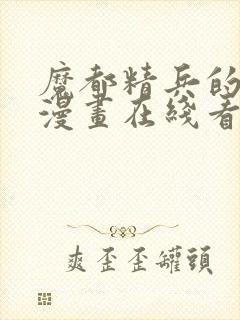 魔都精兵的
漫畫在綫看
爽歪歪罐頭